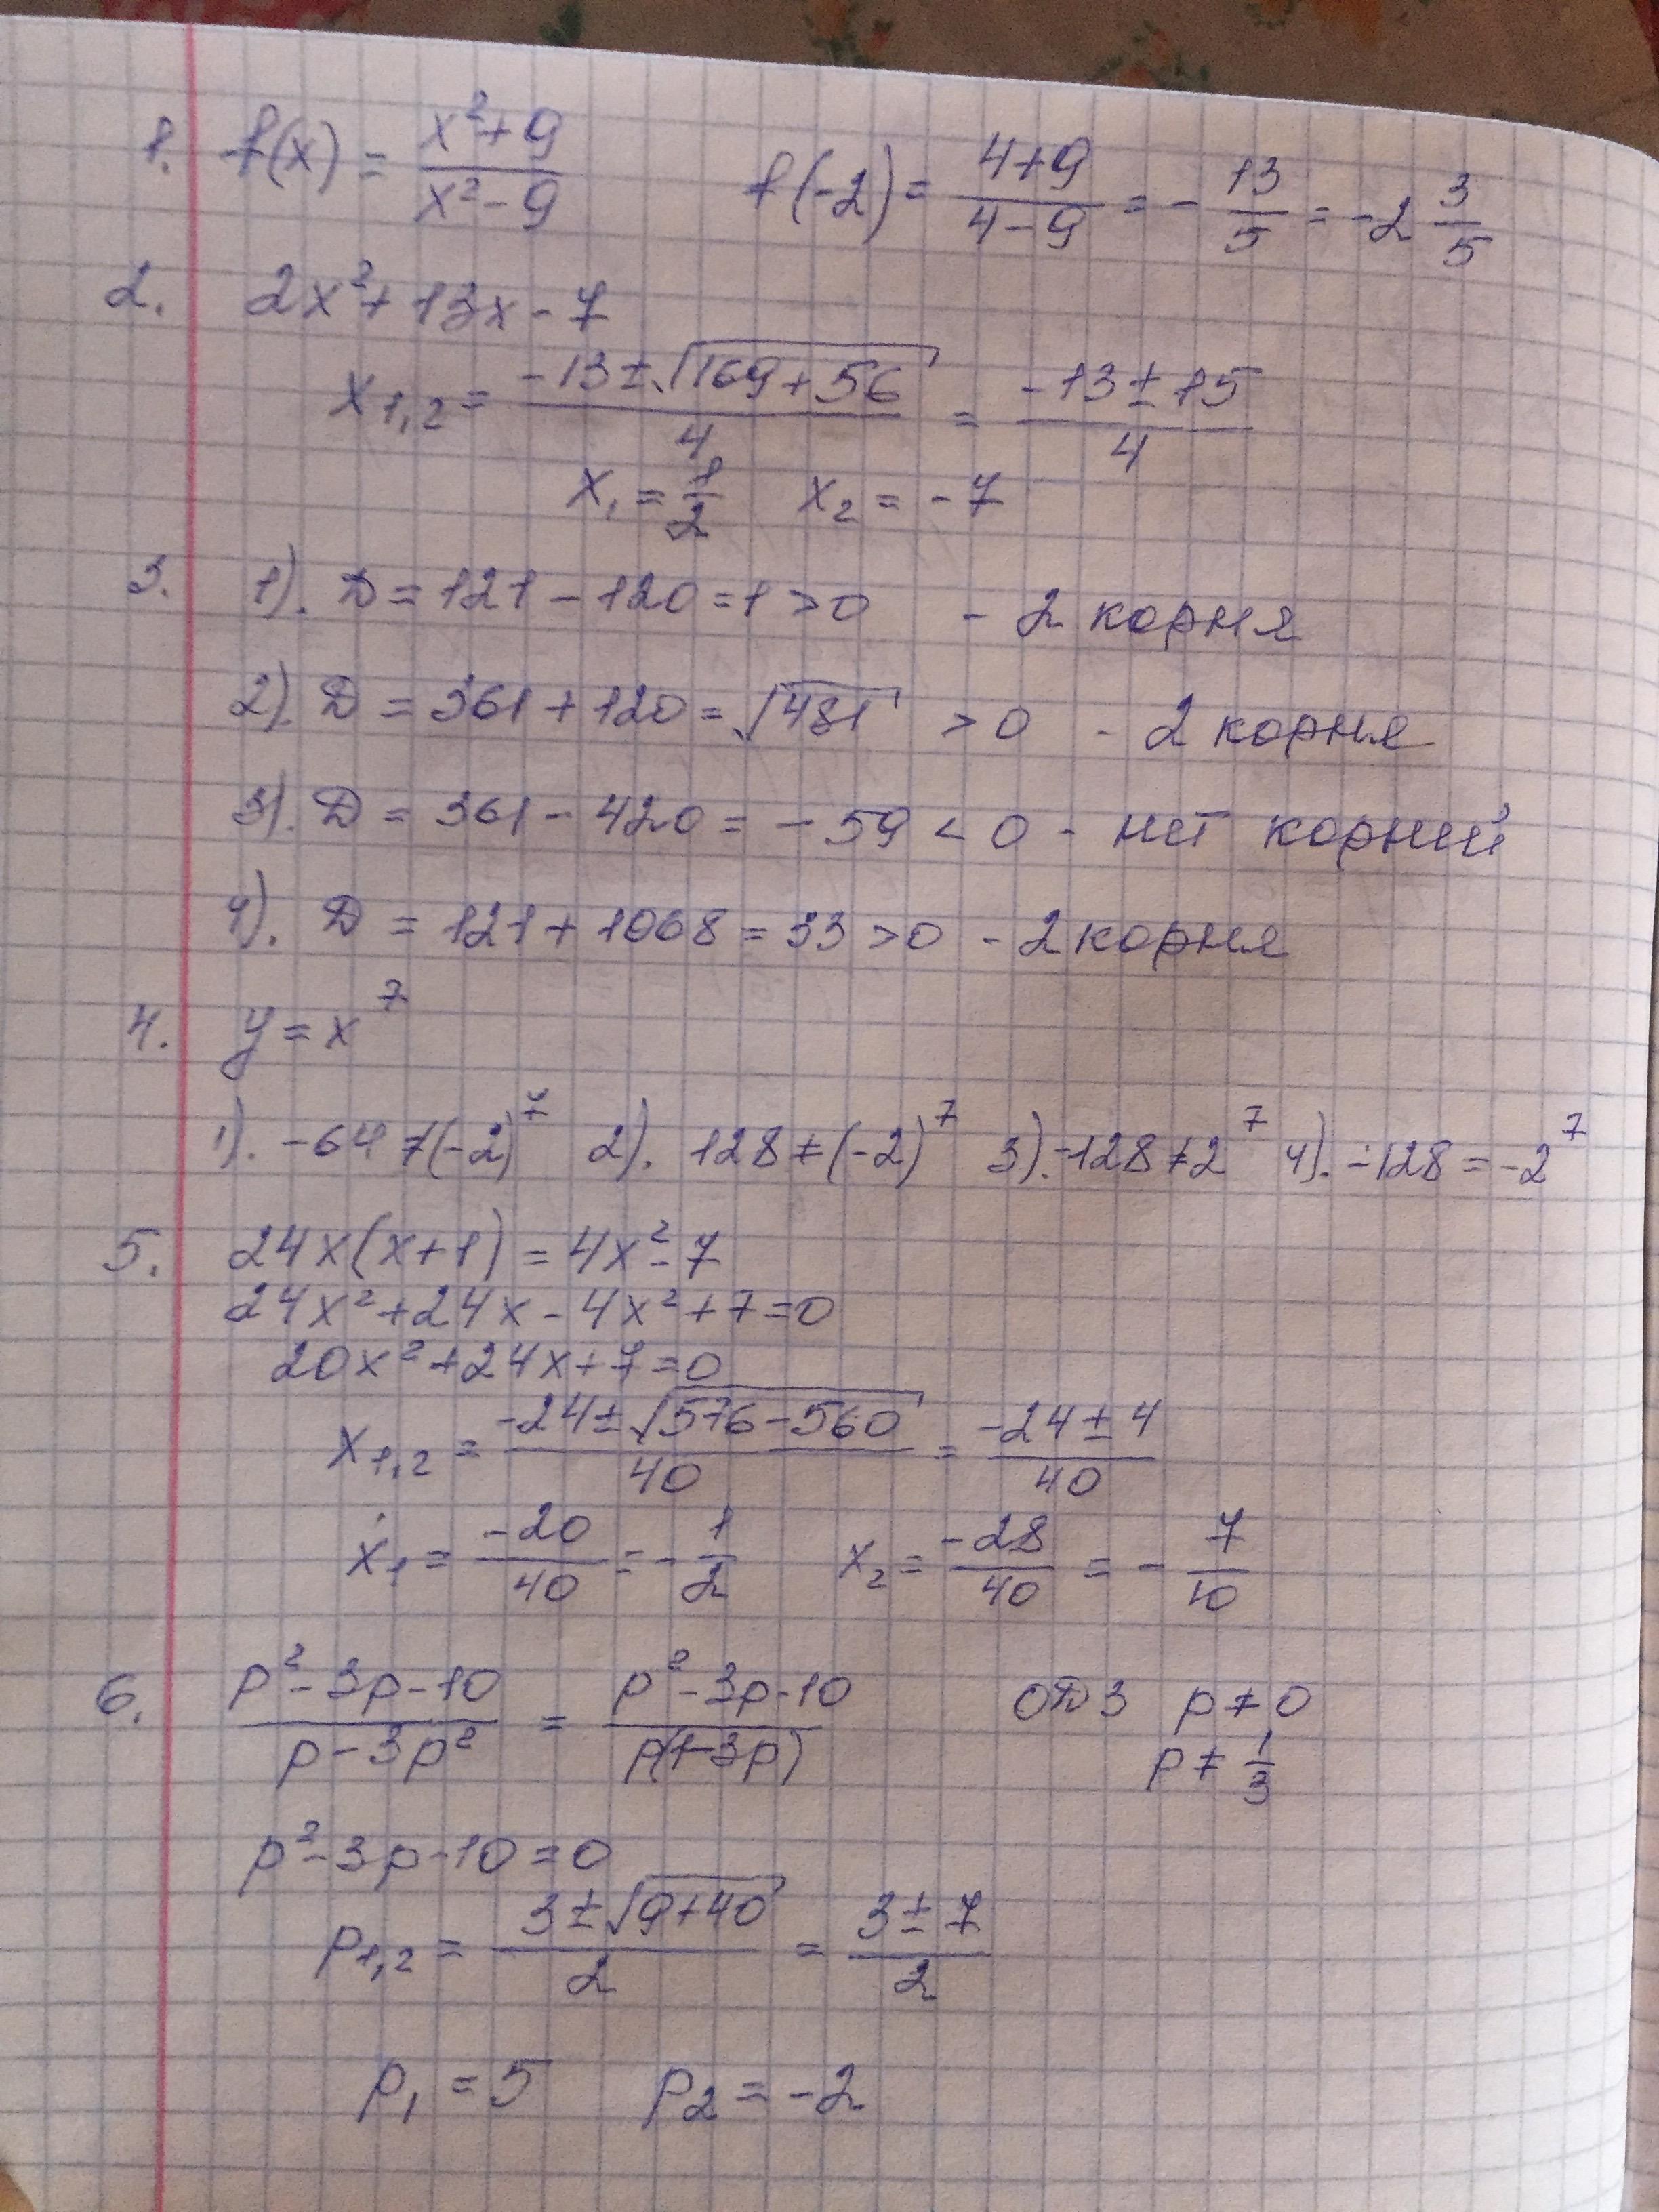 1. f(x) = (x²+9)/(x²-9) f(-2) = (4+9)/(4-9) = - 13/5 = -2 3/5
2. 2x²+13x-7
x₁,₂ = (-13±√(169+56))/4 = (-13±15)/4
x₁ = 1/2 x₂ = -7
3. 1). D = 121 - 120 = 1 > 0 - 2 корня
2). D = 361 + 120 = √481 > 0 - 2 корня
3). D = 361 - 420 = - 59 < 0 - нет корней
4). D = 121 + 1068 = 33 > 0 - 2 корня
4. y = x⁷
1). -64 ≠ (-2)⁷ 2). 128 ≠ (-2)⁷ 3). -128 ≠ 2⁷ 4). -128 = -2⁷
5. 24x(x+1) = 4x²-7
24x²+24x-4x²+7=0
20x²+24x+7=0
x₁,₂ = (-24±√(576-560))/40 = (-24±4)/40
x₁ = -20/40 = - 1/2 x₂ = -28/40 = - 7/10
6. (p²-3p-10)/(p-3p²) = (p²-3p-10)/(p(1-3p)) ОДЗ p ≠ 0
p ≠ 1/3
p²-3p-10=0
p₁,₂ = (3±√(9+40))/2 = (3±7)/2
p₁ = 5 p₂ = -2